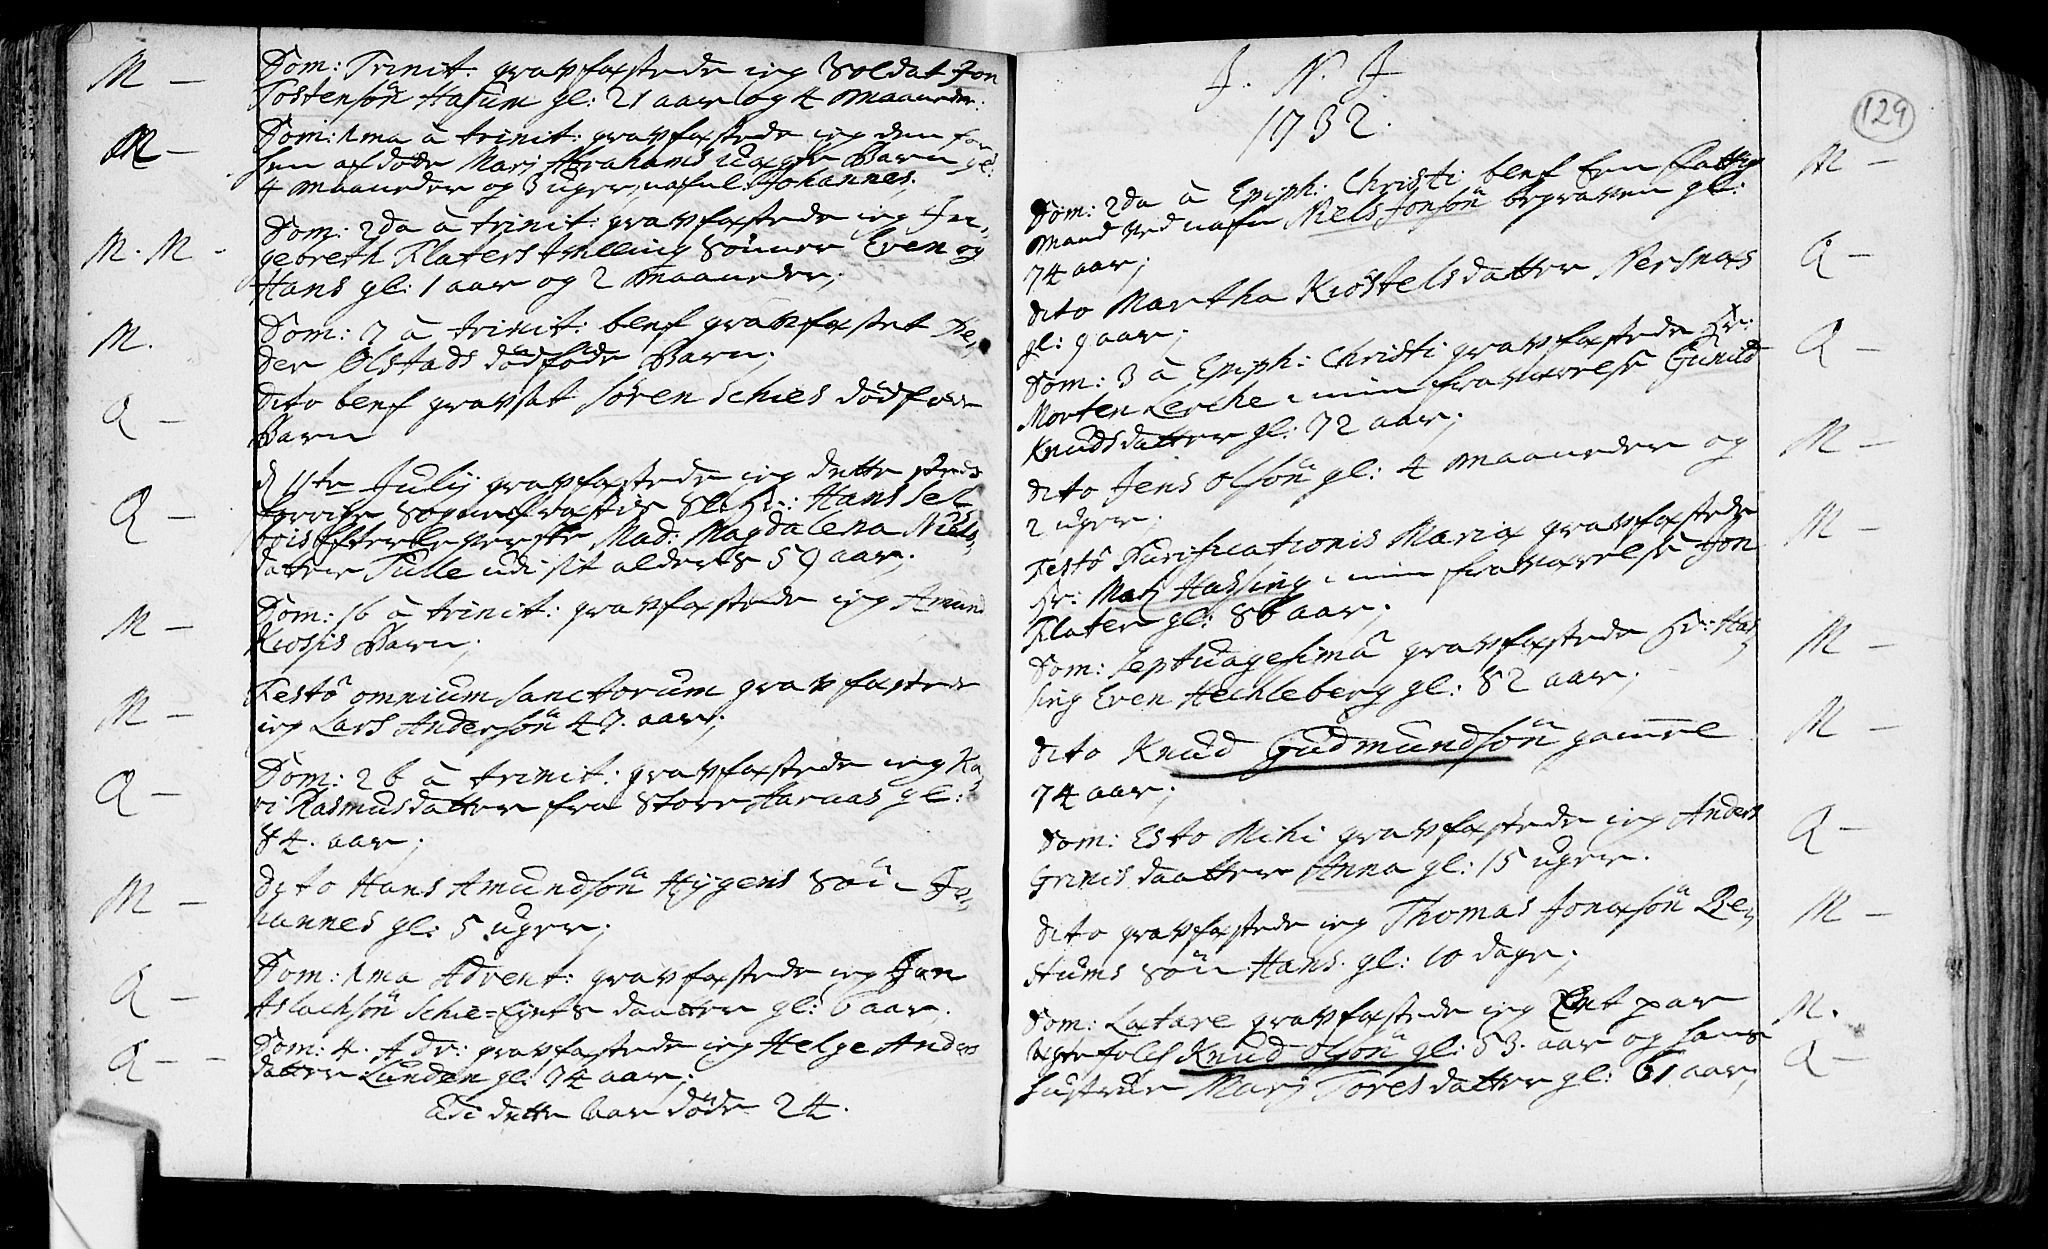 M - Dom: Trinit: gravfæstede ieg Soldat Jon
Tostensön Hasum gl: 21 aar og 4 Maaneder.
M - Dom: 1ma à trinit: gravfæstede ieg den
afdöde Marj Abrahams Barn gl:
4 Maaneder og 3 uger, nafnl: Johannes.
M. M - Dom: 2da à trinit: gravfæstede ieg In-
gebreth Flaters tvilling Sönner Even og
Hans gl: 1 aar og 2 Maaneder;
M. Dom: 7 à trinit: blef gravfæstet Pe-
der Olstads dödföde Barn;
Q - Dito blef gravsat Sören Schies dödföde
Barn
Q - d 11te Julij gravfæstede ieg dette Steds
Sogne Hr: Hans Sel
bois Efterleverske Mad: Magdalena Niels-
datter Tulle udi sit alders 59 aar.
M - Dom: 16 à trinit: gravfæstede ieg Amund
Kiosis Barn;
M - Festô omnium Sanctorum gravfæstede
ieg Lars Andersön 47. aar;
Q - Dom: 26 à trinit: gravfæstede ieg Ka-
ri Rasmusdatter fra Store Aarnæs gl:
84. aar;
M - Dito Hans Amundsön Hygens Sön Jo-
hannes gl: 5 uger;
Q - Dom: 1ma Advent: gravfæstede ieg Jon
Aslachsön Schie=Eyets daatter gl: 6 aar.
Q - - Dom: 4. Adv: gravfæstede ieg Helge Anders
datter Lunden gl: 74 aar;
Udi dette Aar döde 24.
J. N. J.
1732.
129
Dom: 2da à Epiph: Christi blef Een fattig M -
Mand ved nafn Niels Jonsön begraven gl:
74 aar;
Dito Martha Kiöstelsdatter Nersnæs Q -
gl: 9 aar;
Dom: 3 à Epiph: Christi gravfæstede Hr: Q -
Morten Lerche i min fraværelse Gunild
Knudsdatter gl: 72 aar;
Dito Jens Olsön gl: 4 Maaneder og M -
2 uger;
Festô Purificationis Mariæ gravfæstede M -
Hr: Matj Hassing i min fraværelse Jon
Flater gl: 86 aar.
Dom: Septuagesimâ gravfæstede Hr: Has M -
sing Even Hechleberg gl: 82 aar;
Dito Knud Gudmundsön gamel M -
74 aar;
Dom: Esto Mihi gravfæstede ieg Anders Q -
Grinis daatter Anna gl: 15 uger.
Dito gravfæstede ieg Thomas Jonæsön Be- M -
stums Sön Hans. gl: 10 dage;
Dom: Lætare gravfæstede ieg Et par M.
ægtefolch Knud Olsön gl: 53. aar og hans
hustrue Marj Toresdatter gl: 61 aar; Q -